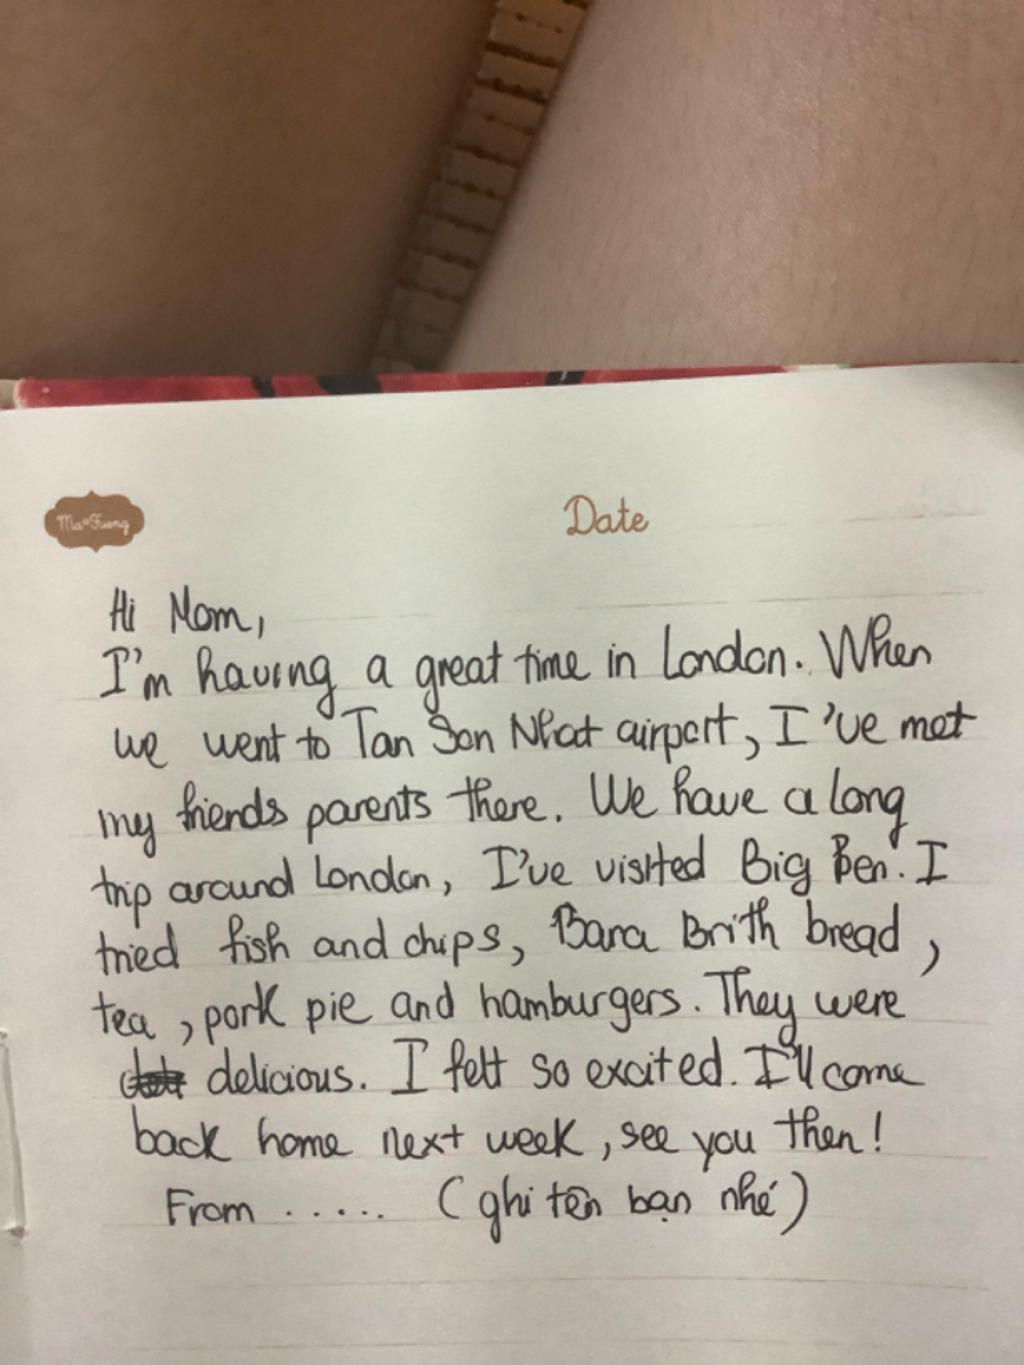 Date
Hi Mom,
I'm having a great time in London. When
we went to Tan Son Nhat airport, I've met
my friends parents there. We have a long
trip around London, I've visited Big Ben. I
tried fish and chips, Bara Brith bread,
tea, pork pie and hamburgers. They were
delicious. I felt so excited. I'll come
back home next week, see you then!
From ..... (ghi tên bạn nhé)